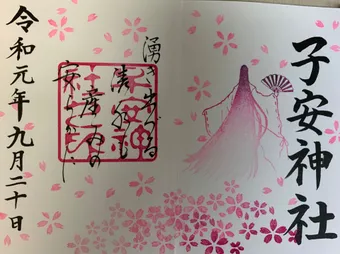 子安神社
湧き出づる
清水も
産月の
安らかに
令和元年九月二十日